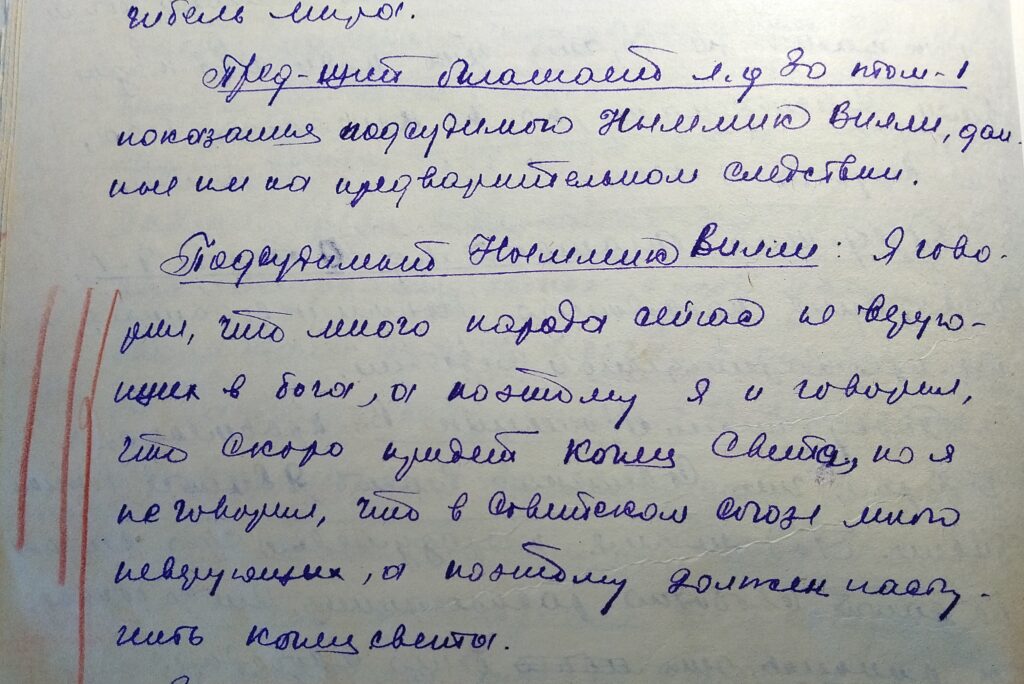 гибель мира.
Пред-щий оглашает л.д 30 том-1
показания подсудимого Ныммик Вилли, дан-
ные им на предварительном следствии.
Подсудимый Ныммик Вилли: Я гово-
рил, что много народа сейчас не верую-
щих в бога, а поэтому я и говорил,
что скоро придет конец света, но я
не говорил, что в Советском союзе много
неверующих, а поэтому должен насту-
пить конец света.